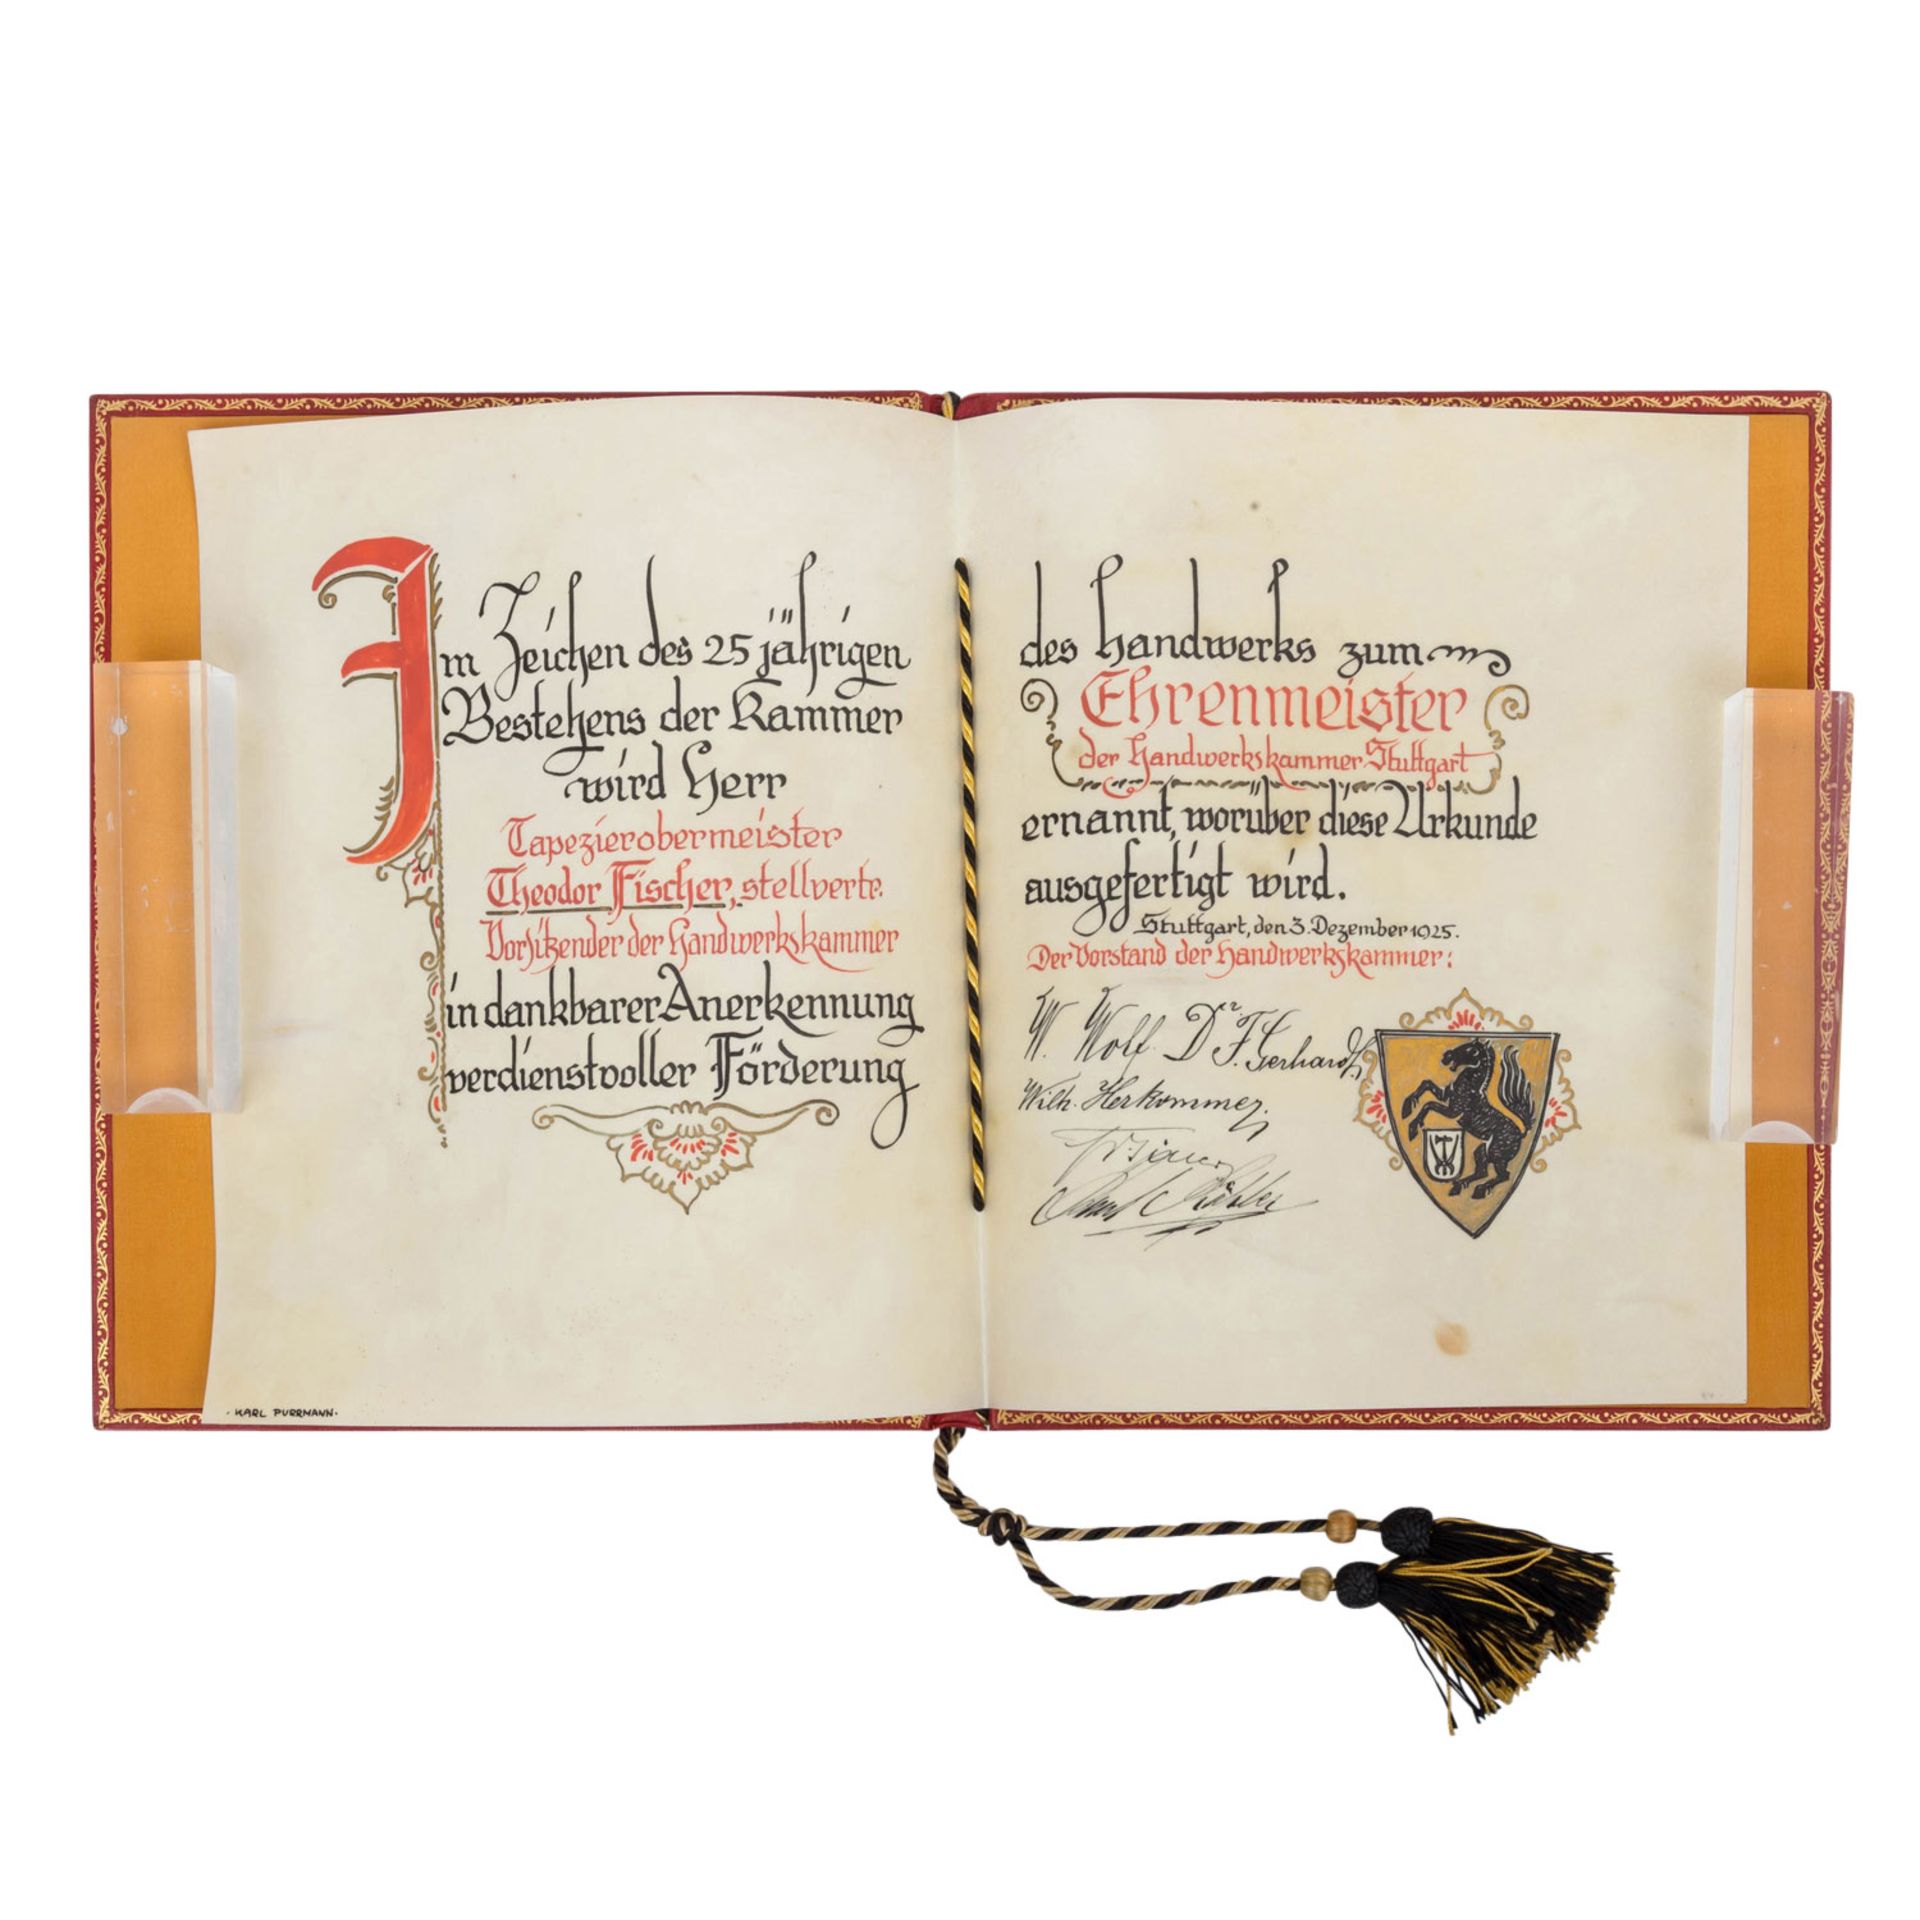 Im Zeichen des 25 jährigen
Bestehens der Kammer
wird Herr
Tapezierobermeister
Theodor Fischer, stellvertr.
Vorsitzender der Handwerkskammer
in dankbarer Anerkennung
verdienstvoller Förderung
· KARL PURRMANN ·
des Handwerks zum
Ehrenmeister
der Handwerkskammer Stuttgart
ernannt, worüber diese Urkunde
ausgefertigt wird.
Stuttgart, den 3. Dezember 1925.
Der Vorstand der Handwerkskammer:
W. Wolf. Dr. F. Gerhardt.
Wilh. Herkommer.